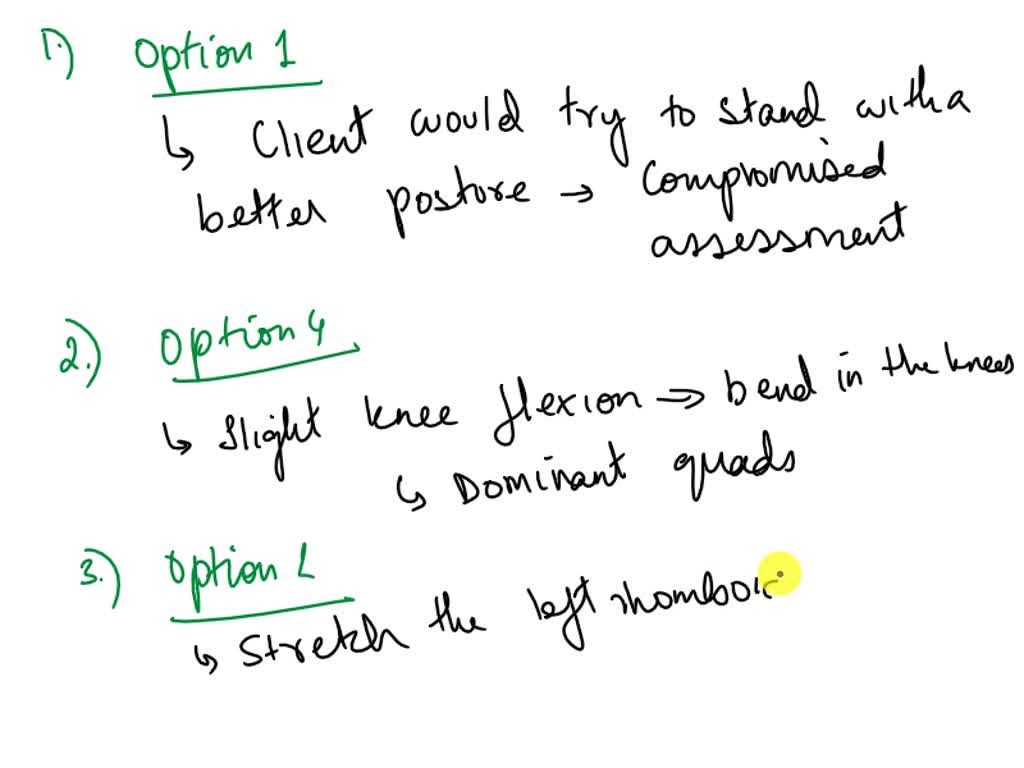 1.) Option 1
↳ Client would try to stand with a
better posture → compromised
assessment
2.) Option 4
↳ Slight knee flexion ⇒ bend in the knees
↳ Dominant quads
3.) Option L
↳ Stretch the left rhomboi